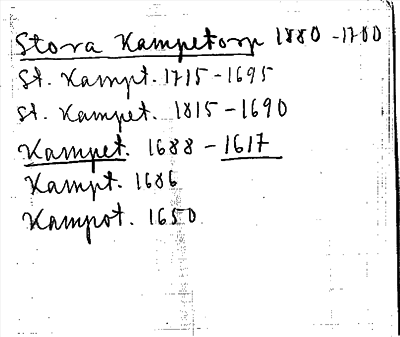 Stora Kampetorp 1880-1700
St. Kampt. 1715-1695
St. Kampet. 1815-1690
Kampet. 1688-1617
Kampt. 1686
Kampot. 1650